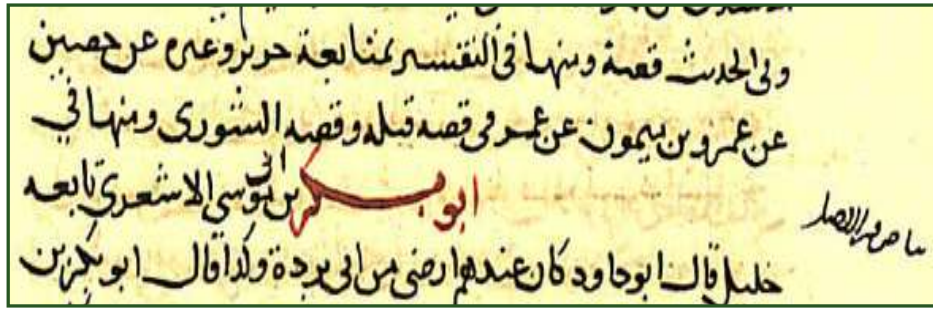 وفى الحديث قصة ومنها فى التفسير بمتابعة جرير وغيره عن حصين
عن عمرو بن ميمون عن عمر فى قصة قتله وقصة الشورى ومنها في
ابو بكر بن ابى موسى الاشعري تابعه
بياض من الاصل
قال ابو داود كان عندهم ارضى من ابى بردة وكذا قال ابو بكر بن